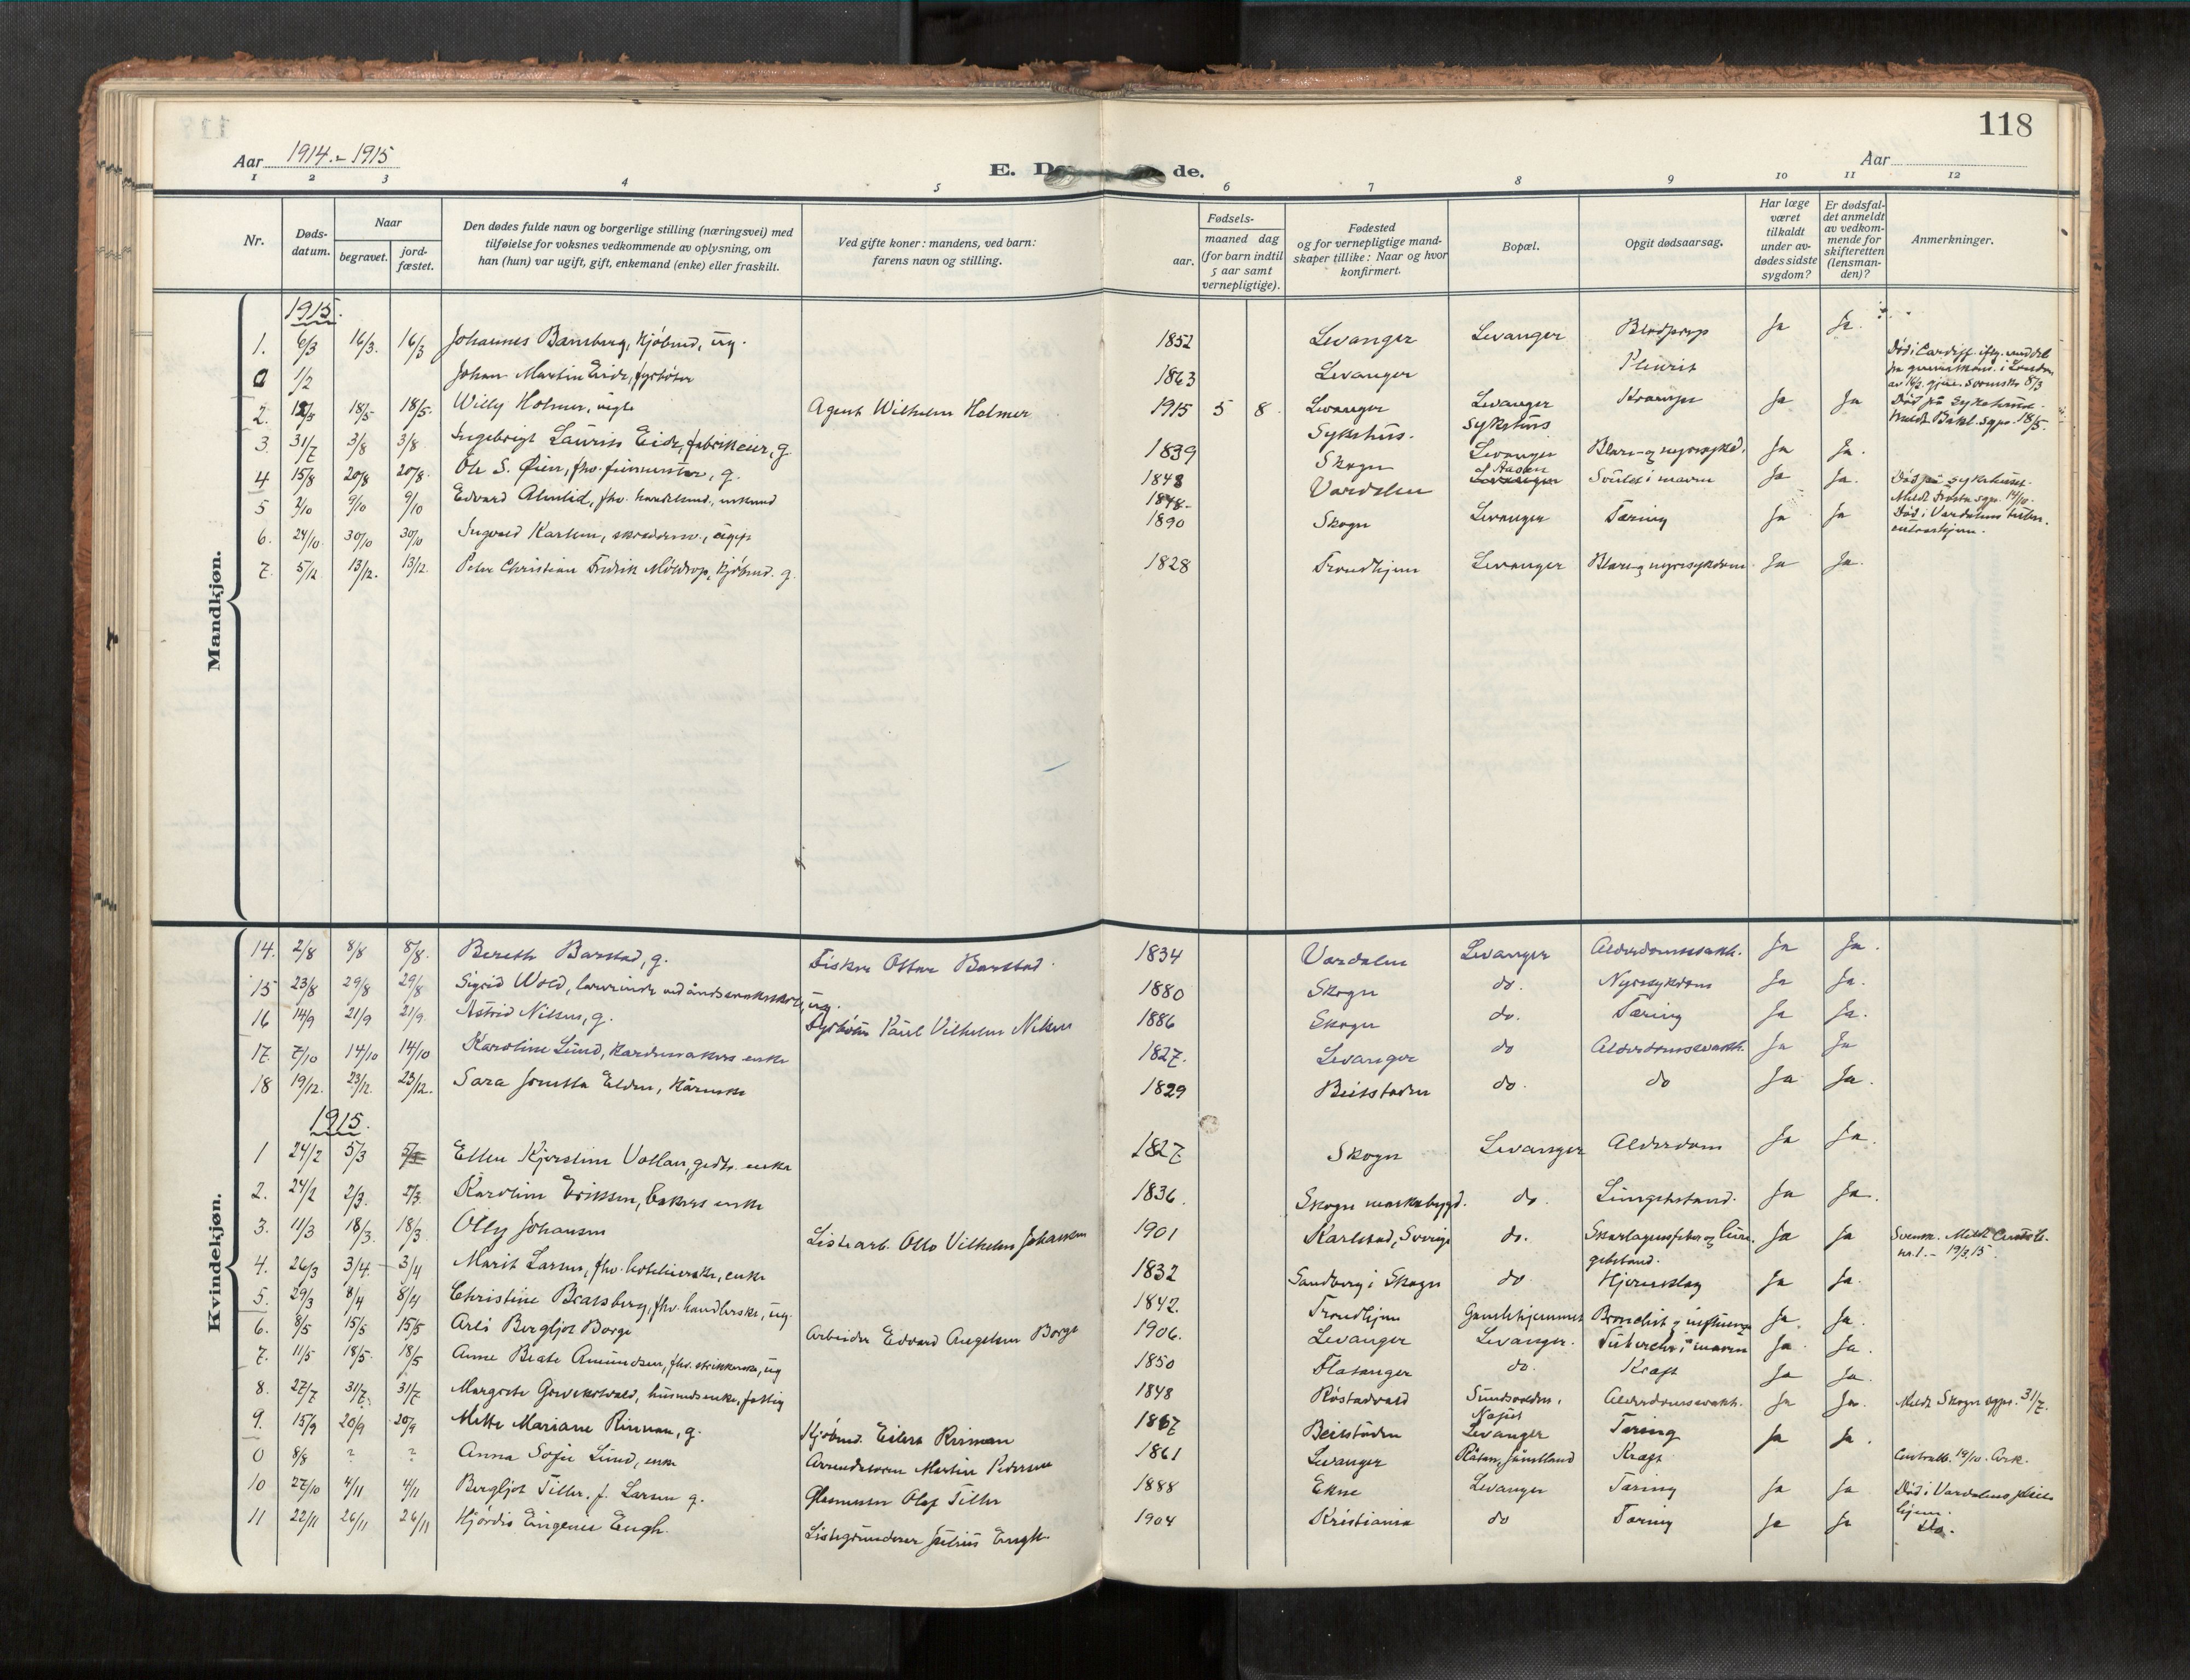 118
Aar 1914 - 1915
E. D de.
Aar
1 2 3 4 5 6 7 8 9 10 11 12
Nr.
Døds-datum.
Naar
begravet.
jord-fæstet.
Den dødes fulde navn og borgerlige stilling (næringsvei) med
tilføielse for voksnes vedkommende av oplysning, om
han (hun) var ugift, gift, enkemand (enke) eller fraskilt.
Ved gifte koner: mandens, ved barn:
farens navn og stilling.
Fødsels-
aar.
maaned dag
(for barn indtil
5 aar samt
vernepligtige).
Fødested
og for vernepligtige mand-
skaper tillike: Naar og hvor
konfirmert.
Bopæl.
Opgit dødsaarsag.
Har læge
været
tilkaldt
under av-
dødes sidste
sygdom?
Er dødsfal-
det anmeldt
av vedkom-
mende for
skifteretten
(lensman-
den)?
Anmerkninger.
Mandkjøn.
1915.
1. 6/3 16/3. 16/3 Johannes Bamberg, kjøbmd, ug. 1852 Levanger Levanger Blodprop Ja Ja.
0 1/2 Johan Martin Eide, fyrbøter 1863 Levanger Pleurit Død i Cardiff
2. 18/5 18/5. Willy Holmer, Agent Wilhelm Holmer 1915 5 8. Levanger Sykehus. Levanger sykehus Krampe Ja Ja Død på Sykehuset. Meldt Bakl. sgpr. 18/5.
3. 31/7 3/8 3/8 Ingebrigt Laurits Eide, fabrikeier, g. 1839 Skogn Levanger Blære- og nyresykd. Ja Ja.
4 15/8 20/8 20/8. Ole S. Øien, fhv. g. 1848 Værdalen Aasen Svulst i maven Ja Ja. Død på sykehuset. Meldt Frosta sgpr. 14/10.
5 2/10 9/10 9/10 Edvard Almlid, fhv. handelsmd., enkemd 1848. Skogn Levanger Tæring Ja Ja Død i Værdalens tuber.
6. 24/10. 30/10 30/10 Ingvald Karlsen, skræddersv., ugift 1890
7. 5/12 13/12. 13/12. Peter Christian Fredrik Møldrop, kjøbmd. g. 1828 Trondhjem Levanger Blære- og nyresykdom. Ja Ja.
Kvindekjøn.
14. 2/8 8/8 8/8. Bereth Barstad, g. Fisker Ottar Barstad. 1834 Værdalen Levanger Alderdomssvakh. Ja Ja.
15 23/8 29/8 29/8 Sigrid Wold, lærerinde ved åndssvakeskole, ug. 1880 Skogn do. Nyresykdom Ja Ja.
16 14/9 21/9 21/9. Astrid Nilsen, g. Fyrbøter Paul Vilhelm Nilsen 1886 Skogn do. Tæring Ja Ja.
17. 7/10 14/10 14/10 Karoline Lund, kardemakers enke 1827. Levanger do Alderdomssvakh. Ja Ja
18 19/12. 23/12. 23/12. Sara Jonetta Elden, kårenke 1829 Beitstaden do. do Ja Ja.
1915.
1 24/2 5/3 5/3 Ellen Kjerstine Vollan, gedtr. enke 1827 Skogn Levanger Alderdom Ja Ja.
2. 24/2 2/3. 2/3. Karoline Eriksen, bakers enke 1836. Skogn markabygd. do. Lungebetænd. Ja Ja.
3. 11/3 18/3. 18/3 Olly Johansen Listearb. Otto Vilhelm Johansen 1901 Karlstad, Sverige do. Skarlagensfeber og lungebetænd. Ja Ja Svensk. Meldt Centralb. nr. 1. - 19/3. 15.
4. 26/3 3/4. 3/4 Marit Larsen, fhv. hotelværtske, enke 1832 Sandberg i Skogn do Hjerneslag Ja Ja.
5. 29/3 8/4 8/4 Christine Bratsberg, fhv. handlerske, ug. 1842. Trondhjem Gamlehjemmet Bronchit og influenza Ja. Ja.
6. 8/5 15/5 15/5 Arli Bergljot Borge Arbeider Edvard Angelsen Borge 1906. Levanger Levanger. Tuberclr. i maven Ja Ja.
7. 11/5 18/5. 18/5 Anne Beate Amundsen, fhv. strikkerske, ug 1850 Flatanger do. Kræft Ja Ja.
8. 27/7 31/7. 31/7 Margrete husmdsenke, fattig 1848 Røstadvald Sundvolden, Alderdomssvakh. Ja Ja. Meldt Skogn sgpr. 31/7.
9. 15/9 20/9 20/9 Mette Mariane Rinnan, g. Kjøbmd. Eilert Rinnan 1867 Beitstaden Levanger Tæring Ja Ja.
0 8/8 ? ? Anna Sofie Lund, enke Martin Pedersen 1861 Levanger Kræft Centralb. 19/10. Ark.
10 27/10 4/11 4/11 Bergljot Tiller, f. Larsen g. Glasmester Olaf Tiller 1888 Ekne Levanger Tæring Ja Ja Død i Værdalens pleiehjem.
11 22/11 26/11 26/11 Hjørdis Eugenie Engh Listegrunderer Julius Engh 1904 Kristiania do Tæring Ja Ja do.